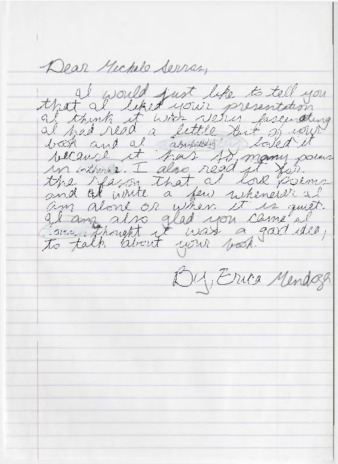 Dear Michele Serros,
I would just like to tell you
that I liked your presentation
I think it was very fascinating
I had read a little bit of your
book and I absolutely loved it
because it has so many poems
in there. I also read it for
the reason that I love poems
and I write a few whenever I
am alone or when it is quiet.
I am also glad you came I
thought it was a good idea,
to talk about your book.
By, Erica Mendoza